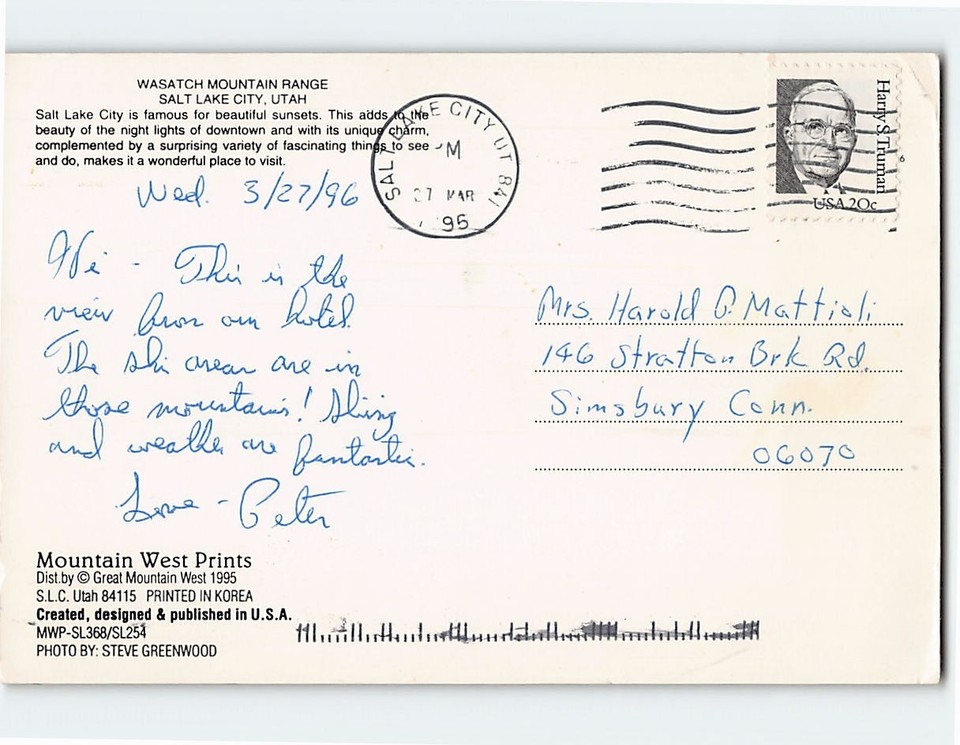 WASATCH MOUNTAIN RANGE
SALT LAKE CITY, UTAH
Salt Lake City is famous for beautiful sunsets. This adds to the
beauty of the night lights of downtown and with its unique charm,
complemented by a surprising variety of fascinating things to see
and do, makes it a wonderful place to visit.
SALT LAKE CITY UT 841
PM
27 MAR
95
Harry S. Truman
USA 20c
Wed. 3/27/96
Hi - This is the
view from our hotel.
The ski areas are in
those mountains! Skiing
and weather are fantastic.
Love - Peter
Mrs. Harold P. Mattioli
146 Stratton Brk Rd.
Simsbury Conn.
06070
Mountain West Prints
Dist.by © Great Mountain West 1995
S.L.C. Utah 84115 PRINTED IN KOREA
Created, designed & published in U.S.A.
MWP-SL368/SL254
PHOTO BY: STEVE GREENWOOD